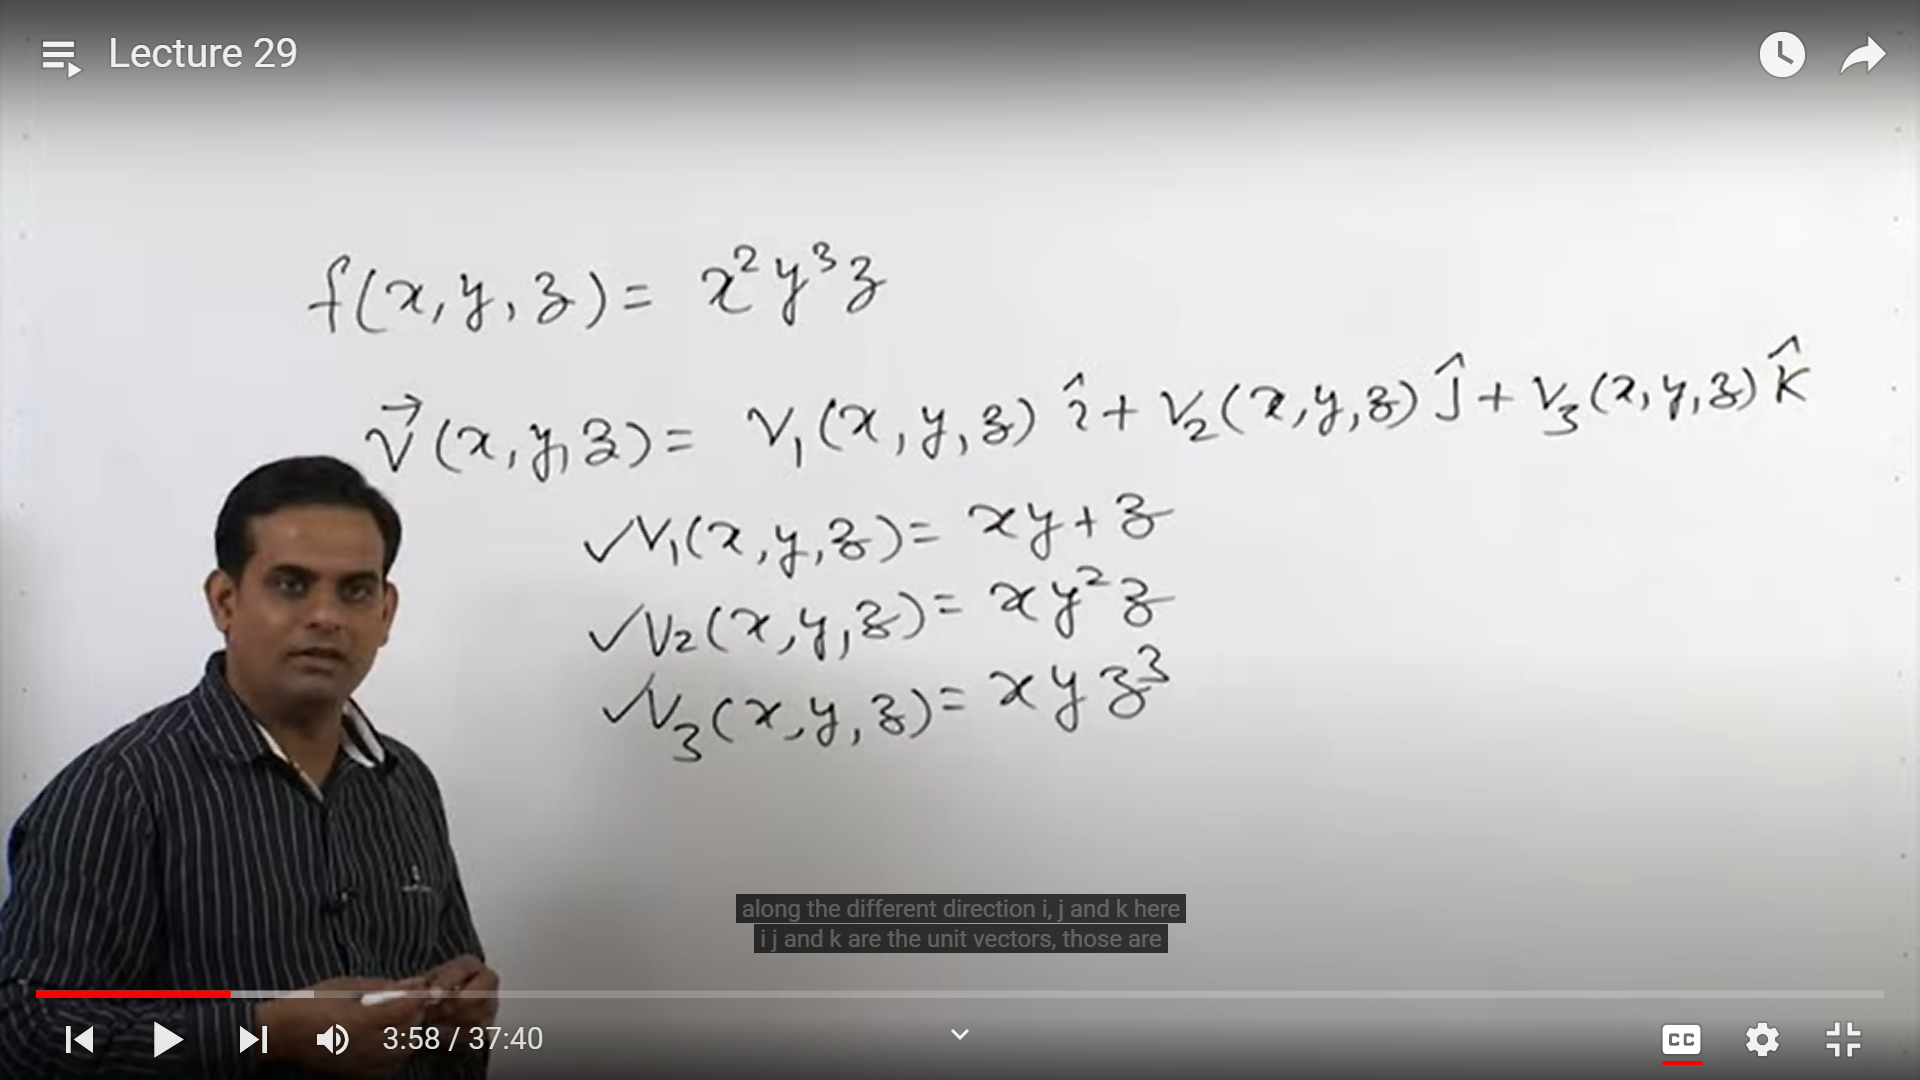 Lecture 29
f(x,y,z) = x²y³z
v⃗(x,y,z) = v₁(x,y,z) î + v₂(x,y,z) ĵ + v₃(x,y,z) k̂
✓v₁(x,y,z) = xy+z
✓v₂(x,y,z) = xy²z
✓v₃(x,y,z) = xyz³
along the different direction i, j and k here
i j and k are the unit vectors, those are
3:58 / 37:40
CC